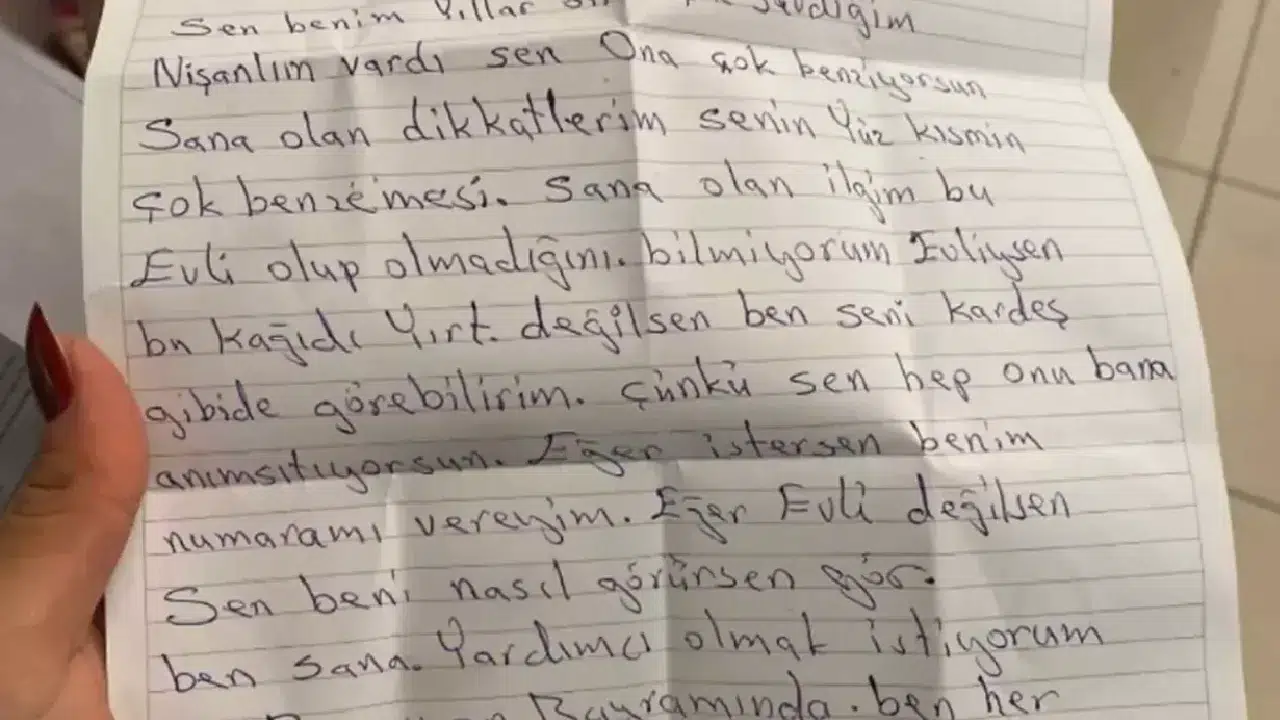 Sen benim Yıllar sevdiğim
Nişanlım vardı sen Ona çok benziyorsun
Sana olan dikkatlerim senin Yüz kısmın
çok benzemesi. Sana olan ilgim bu
Evli olup olmadığını. bilmiyorum Evliysen
bu kağıdı Yırt. değilsen ben seni kardeş
gibide görebilirim. çünkü sen hep onu bana
anımsıtıyorsun. Eğer istersen benim
numaramı vereyim. Eğer Evli değilsen
Sen beni nasıl görürsen gör.
ben sana. Yardımcı olmak istiyorum
Bayramında. ben her